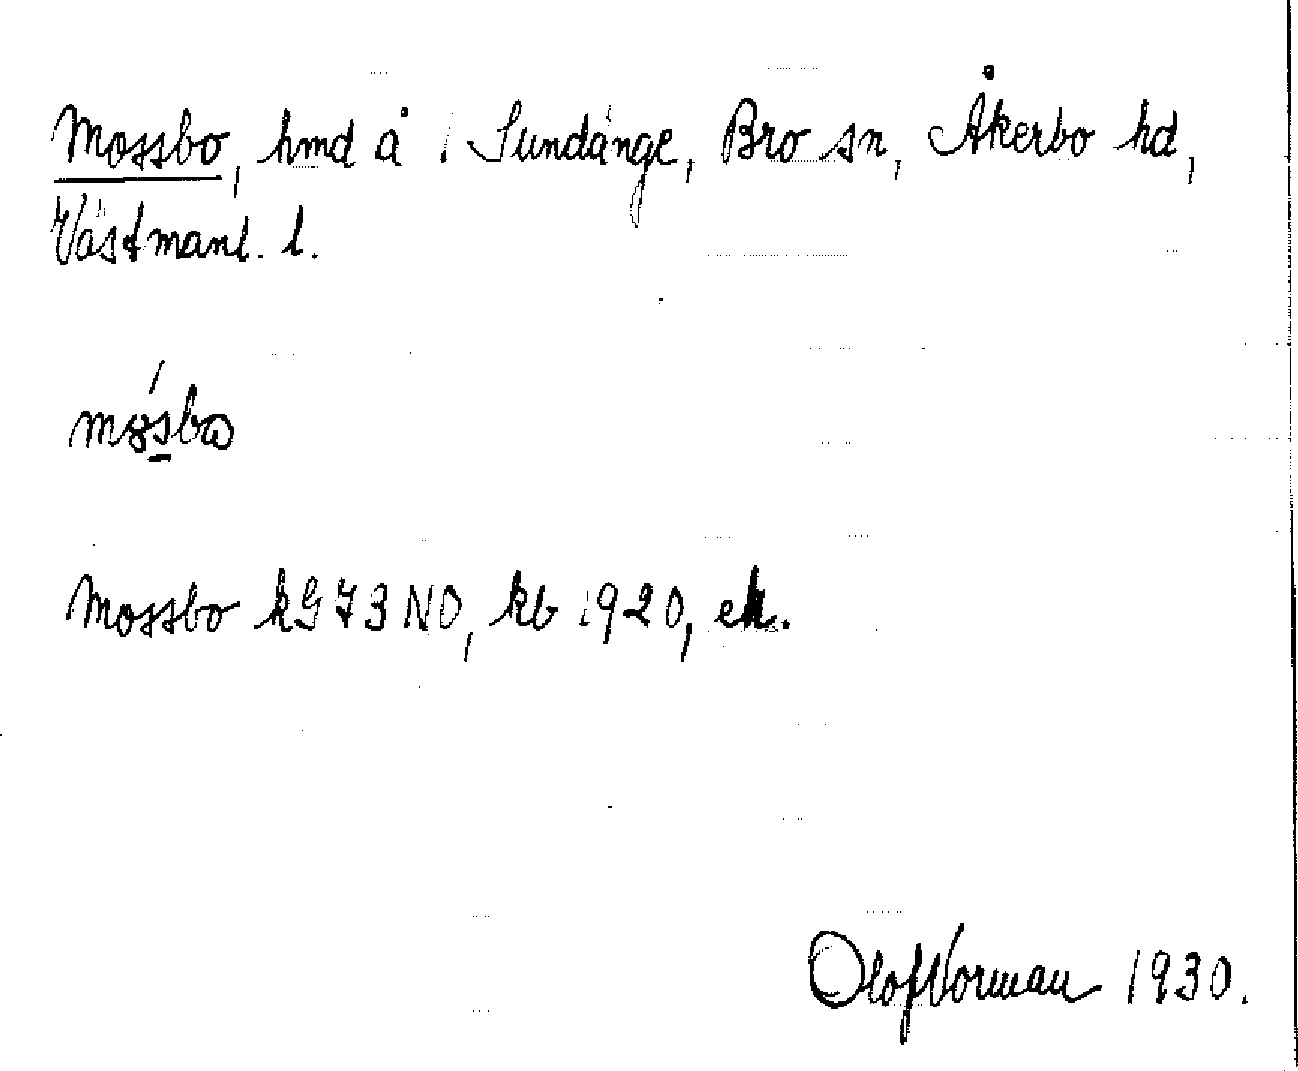 Mossbo, hmd å 1 Sundänge, Bro sn, Åkerbo hd,
Västmanl. l.
Mossbo kG73NO, kb 1920, ek.
Olof Norman 1930.